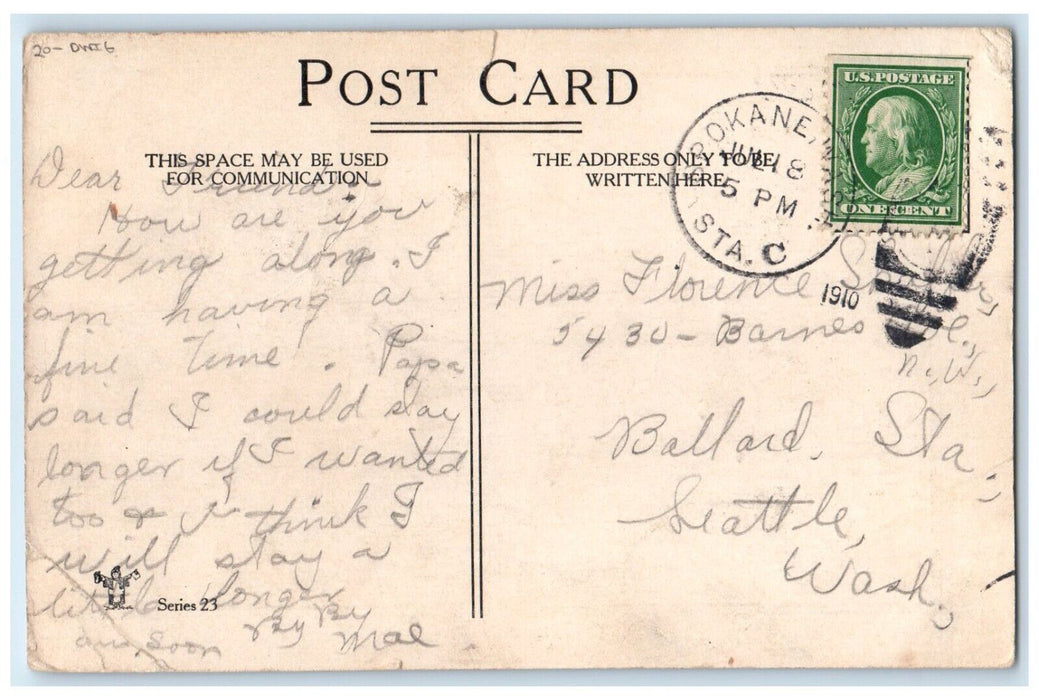 20- DWI6
POST CARD
THIS SPACE MAY BE USED
FOR COMMUNICATION
THE ADDRESS ONLY TO BE
WRITTEN HERE
U.S. POSTAGE
ONE CENT
SPOKANE, WASH.
JUL 18
5 PM
STA. C
1910
Dear Friend:
How are you
getting along. I
am having a
fine time. Papa
said I could stay
longer if I wanted
too & I think I
will stay a
little longer
By By
Mae
ans. Soon
Series 23
Miss Florence
5430 - Barnes Ave.,
N.W.,
Ballard, Sta.,
Seattle,
Wash.,